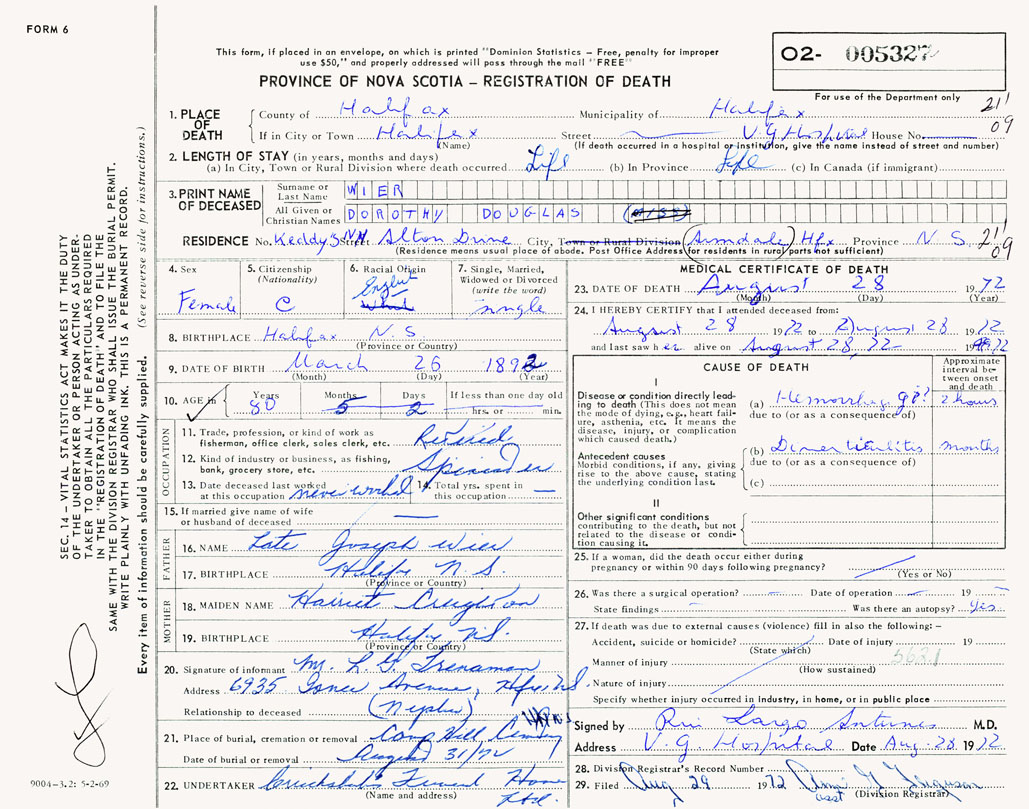 FORM 6
This form, if placed in an envelope, on which is printed "Dominion Statistics – Free, penalty for improper
use $50," and properly addressed will pass through the mail "FREE"
PROVINCE OF NOVA SCOTIA – REGISTRATION OF DEATH
O2- 005327
For use of the Department only
211
09
1. PLACE OF DEATH
County of Halifax Municipality of Halifax
If in City or Town Halifax Street V G Hospital House No.
(Name) (If death occurred in a hospital or institution, give the name instead of street and number)
2. LENGTH OF STAY (in years, months and days)
(a) In City, Town or Rural Division where death occurred Life (b) In Province Life (c) In Canada (if immigrant)
3. PRINT NAME OF DECEASED
Surname or Last Name WIER
All Given or Christian Names DOROTHY DOUGLAS (MISS)
RESIDENCE No. Keddy's NH Street Alton Drive City, Town or Rural Division (Armdale) Hfx Province N S.
211
09
(Residence means usual place of abode. Post Office Address for residents in rural parts not sufficient)
4. Sex
Female
5. Citizenship
(Nationality)
C
6. Racial Origin
English
7. Single, Married,
Widowed or Divorced
(write the word)
single
8. BIRTHPLACE Halifax N. S.
(Province or Country)
9. DATE OF BIRTH March 26 1892
(Month) (Day) (Year)
10. AGE in Years Months Days If less than one day old
80 5 2 hrs. or min.
OCCUPATION
11. Trade, profession, or kind of work as
fisherman, office clerk, sales clerk, etc. Retired
12. Kind of industry or business, as fishing,
bank, grocery store, etc. Spinster
13. Date deceased last worked
at this occupation never worked
14. Total yrs. spent in
this occupation
15. If married give name of wife
or husband of deceased
FATHER
16. NAME Late Joseph Wier
17. BIRTHPLACE Halifax N. S.
(Province or Country)
MOTHER
18. MAIDEN NAME Harriet Creighton
19. BIRTHPLACE Halifax N.S.
(Province or Country)
20. Signature of informant Mr. L. G. Trenaman
Address 6935 Avenue, Hfx NS
Relationship to deceased (Nephew)
21. Place of burial, cremation or removal Camp Hill Cemetery
Date of burial or removal August 31/72
22. UNDERTAKER Cruikshank's Funeral Home
(Name and address) Ltd.
MEDICAL CERTIFICATE OF DEATH
23. DATE OF DEATH August 28 1972
(Month) (Day) (Year)
24. I HEREBY CERTIFY that I attended deceased from:
August 28 1972 to August 28 1972
and last saw her alive on August 28, 72 1972
CAUSE OF DEATH
Approximate
interval be-
tween onset
and death
I
Disease or condition directly lead-
ing to death (This does not mean
the mode of dying, e.g., heart fail-
ure, asthenia, etc. It means the
disease, injury, or complication
which caused death.)
(a) Hemorrhage gi? 2 hours
due to (or as a consequence of)
Antecedent causes
Morbid conditions, if any, giving
rise to the above cause, stating
the underlying condition last.
(b) Diverticulitis months
due to (or as a consequence of)
(c)
II
Other significant conditions
contributing to the death, but not
related to the disease or condi-
tion causing it.
25. If a woman, did the death occur either during
pregnancy or within 90 days following pregnancy?
(Yes or No)
26. Was there a surgical operation? Date of operation 19
State findings Was there an autopsy? Yes
27. If death was due to external causes (violence) fill in also the following: –
Accident, suicide or homicide? Date of injury 19
(State which)
Manner of injury 562.1
(How sustained)
Nature of injury
Specify whether injury occurred in industry, in home, or in public place
Signed by Rui Largo Antunes M.D.
Address V. G Hospital Date Aug. 28 1972
28. Division Registrar's Record Number
29. Filed Aug 29 1972
asst (Division Registrar)
SEC. 14 – VITAL STATISTICS ACT MAKES IT THE DUTY
OF THE UNDERTAKER OR PERSON ACTING AS UNDER-
TAKER TO OBTAIN ALL THE PARTICULARS REQUIRED
IN THE "REGISTRATION OF DEATH" AND TO FILE THE
SAME WITH THE DIVISION REGISTRAR WHO SHALL ISSUE THE BURIAL PERMIT.
WRITE PLAINLY WITH UNFADING INK. THIS IS A PERMANENT RECORD.
Every item of information should be carefully supplied. (See reverse side for instructions.)
9004-3.2: 5-2-69